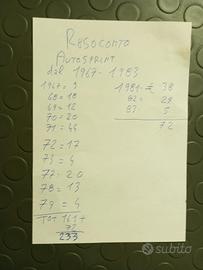 RESOCONTO
AUTOSPRINT
dal 1967-1983
1967= 3
68= 18
69= 12
70= 20
71= 44
72= 17
73= 4
77= 20
78= 13
79= 4
TOT 161+
72
233
1981= 38
82= 28
83= 5
72
subito